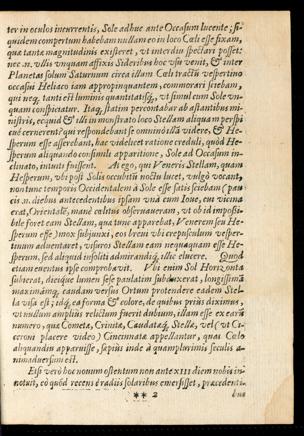 ter in oculos incurrentis, Sole adhuc ante Occasum lucente; si-
quidem compertum habebam nullam eo in loco Cœli esse fixam,
quæ tantæ magnitudinis existeret, vt interdiu spectari posset:
nec .n. vllis vnquam affixis Sideribus hoc vsu venit, & inter
Planetas solum Saturnum circa illam Cœli tractũ vespertino
occasui Heliaco iam appropinquantem, commorari sciebam,
qui neq. tanti est luminis quantitatisq́, vt simul cum Sole vn-
quam conspiciatur. Itaq, statim percontabar ab astantibus mi-
nistris, ecquid & illi in monstrato loco Stellam aliquam perspi
cuè cernerent? qui respondebant se omninò illã videre, & He-
sperum esse asserebant, hac videlicet ratione creduli, quòd He-
sperum aliquando consimili apparitione, Sole ad Occasum in-
clinato, intuiti fuissent. At ego, qui Veneris Stellam, quam
Hesperum, vbi post Solis occubitũ noctu lucet, vulgò vocant,
non tunc temporis Occidentalem à Sole esse satis sciebam (pau
cis .n. diebus antecedentibus ipsam vnà cum Ioue, eui vicina
erat, Orientalẽ, manè cælitus obseruaueram, vt ob id impossi-
bile foret eam Stellam, quæ tunc apparebat, Venerem seu He-
sperum esse) mox subiunxi, eos breui vbi crepusculum vesper-
tinum aduentaret, visuros Stellam eam nequaquam esse He-
sperum, sed aliquid insoliti admirandiq́, illic elucere. Quod
etiam euentus ipse comprobauit. Vbi enim Sol Horizonta
subierat, diesq́ue lumen sese paulatim subduxerat, longissima
maximáq, caudam versus Ortum protendere eadem Stel-
la visa est; idq, ea forma & colore, de quibus priùs diximus,
vt nullum ampliùs relictum fuerit dubium, illam esse ex earũ
numero, quæ Cometæ, Crinitæ, Caudatæq́, Stellæ, vel (vt Ci-
ceroni placere video) Cincinnatæ appellantur, quas Cœlo
aliquandiu apparuisse, sæpius inde à quamplurimis seculis a-
nimaduersum est.
Etsi verò hoc nouum ostentum non ante XIII diem nobis in-
notuit, eò quòd recens è radiis solaribus emersisset, præcedenti-
** 2 bus